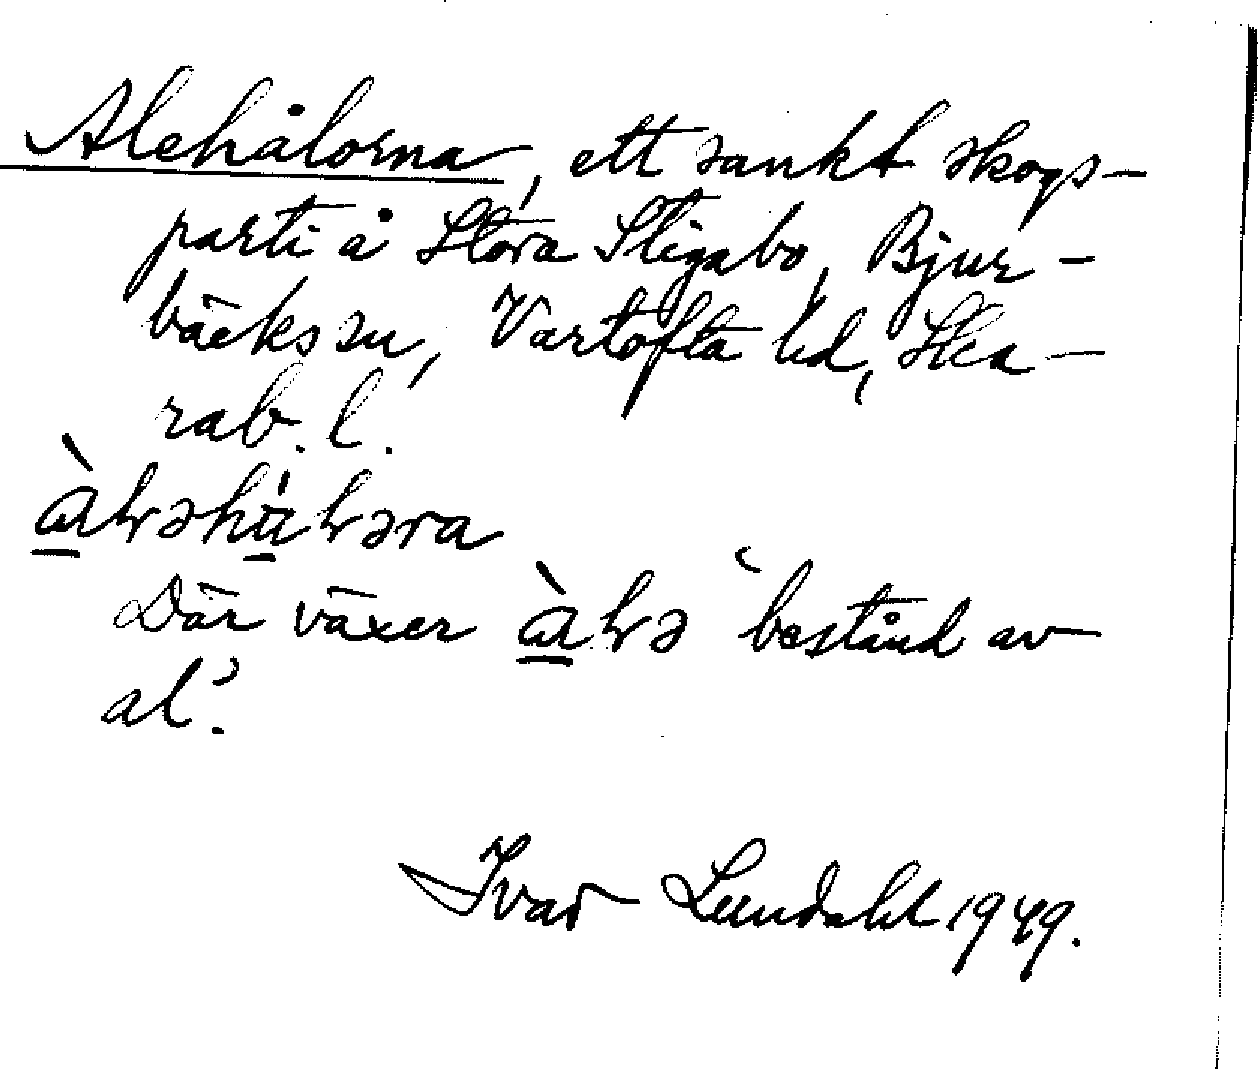 Alehålorna, ett sankt skogs-
parti å Stora Stigabo, Bjur-
bäcks sn, Vartofta hd, Ska-
rab. l.
àləhåləra
Där växer àlə 'bestånd av
al'.
Ivar Lundahl 1949.